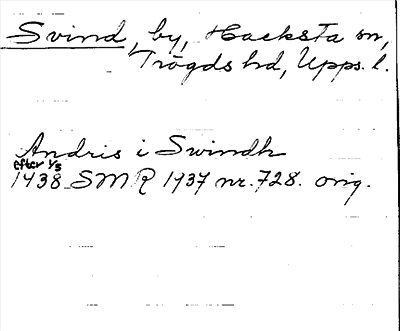 Svind, by, Hacksta sn,
Trögds hd, Upps. l.
Andris i Swindh
efter 1/3
1438 SMR 1937 nr. 728. orig.